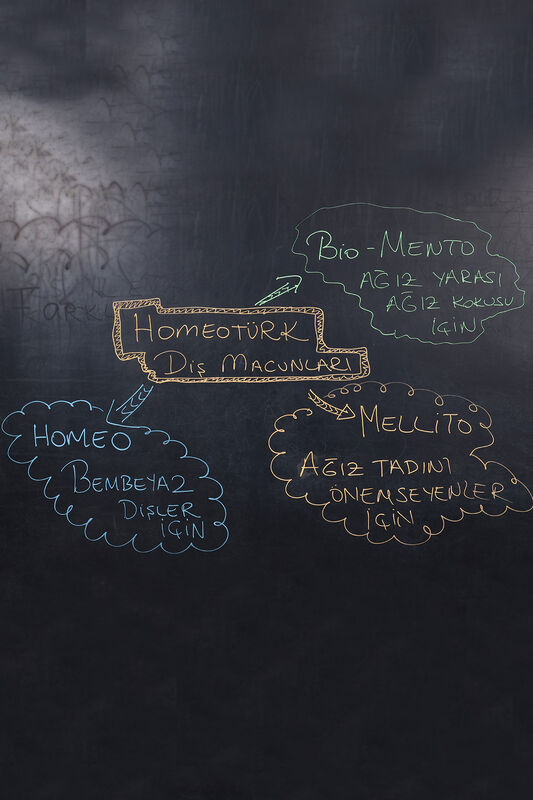 HOMEOTÜRK
DİŞ MACUNLARI
BIO-MENTO
AĞIZ YARASI
AĞIZ KOKUSU
İÇİN
HOMEO
BEMBEYAZ
DİŞLER
İÇİN
MELLİTO
AĞIZ TADINI
ÖNEMSEYENLER
İÇİN